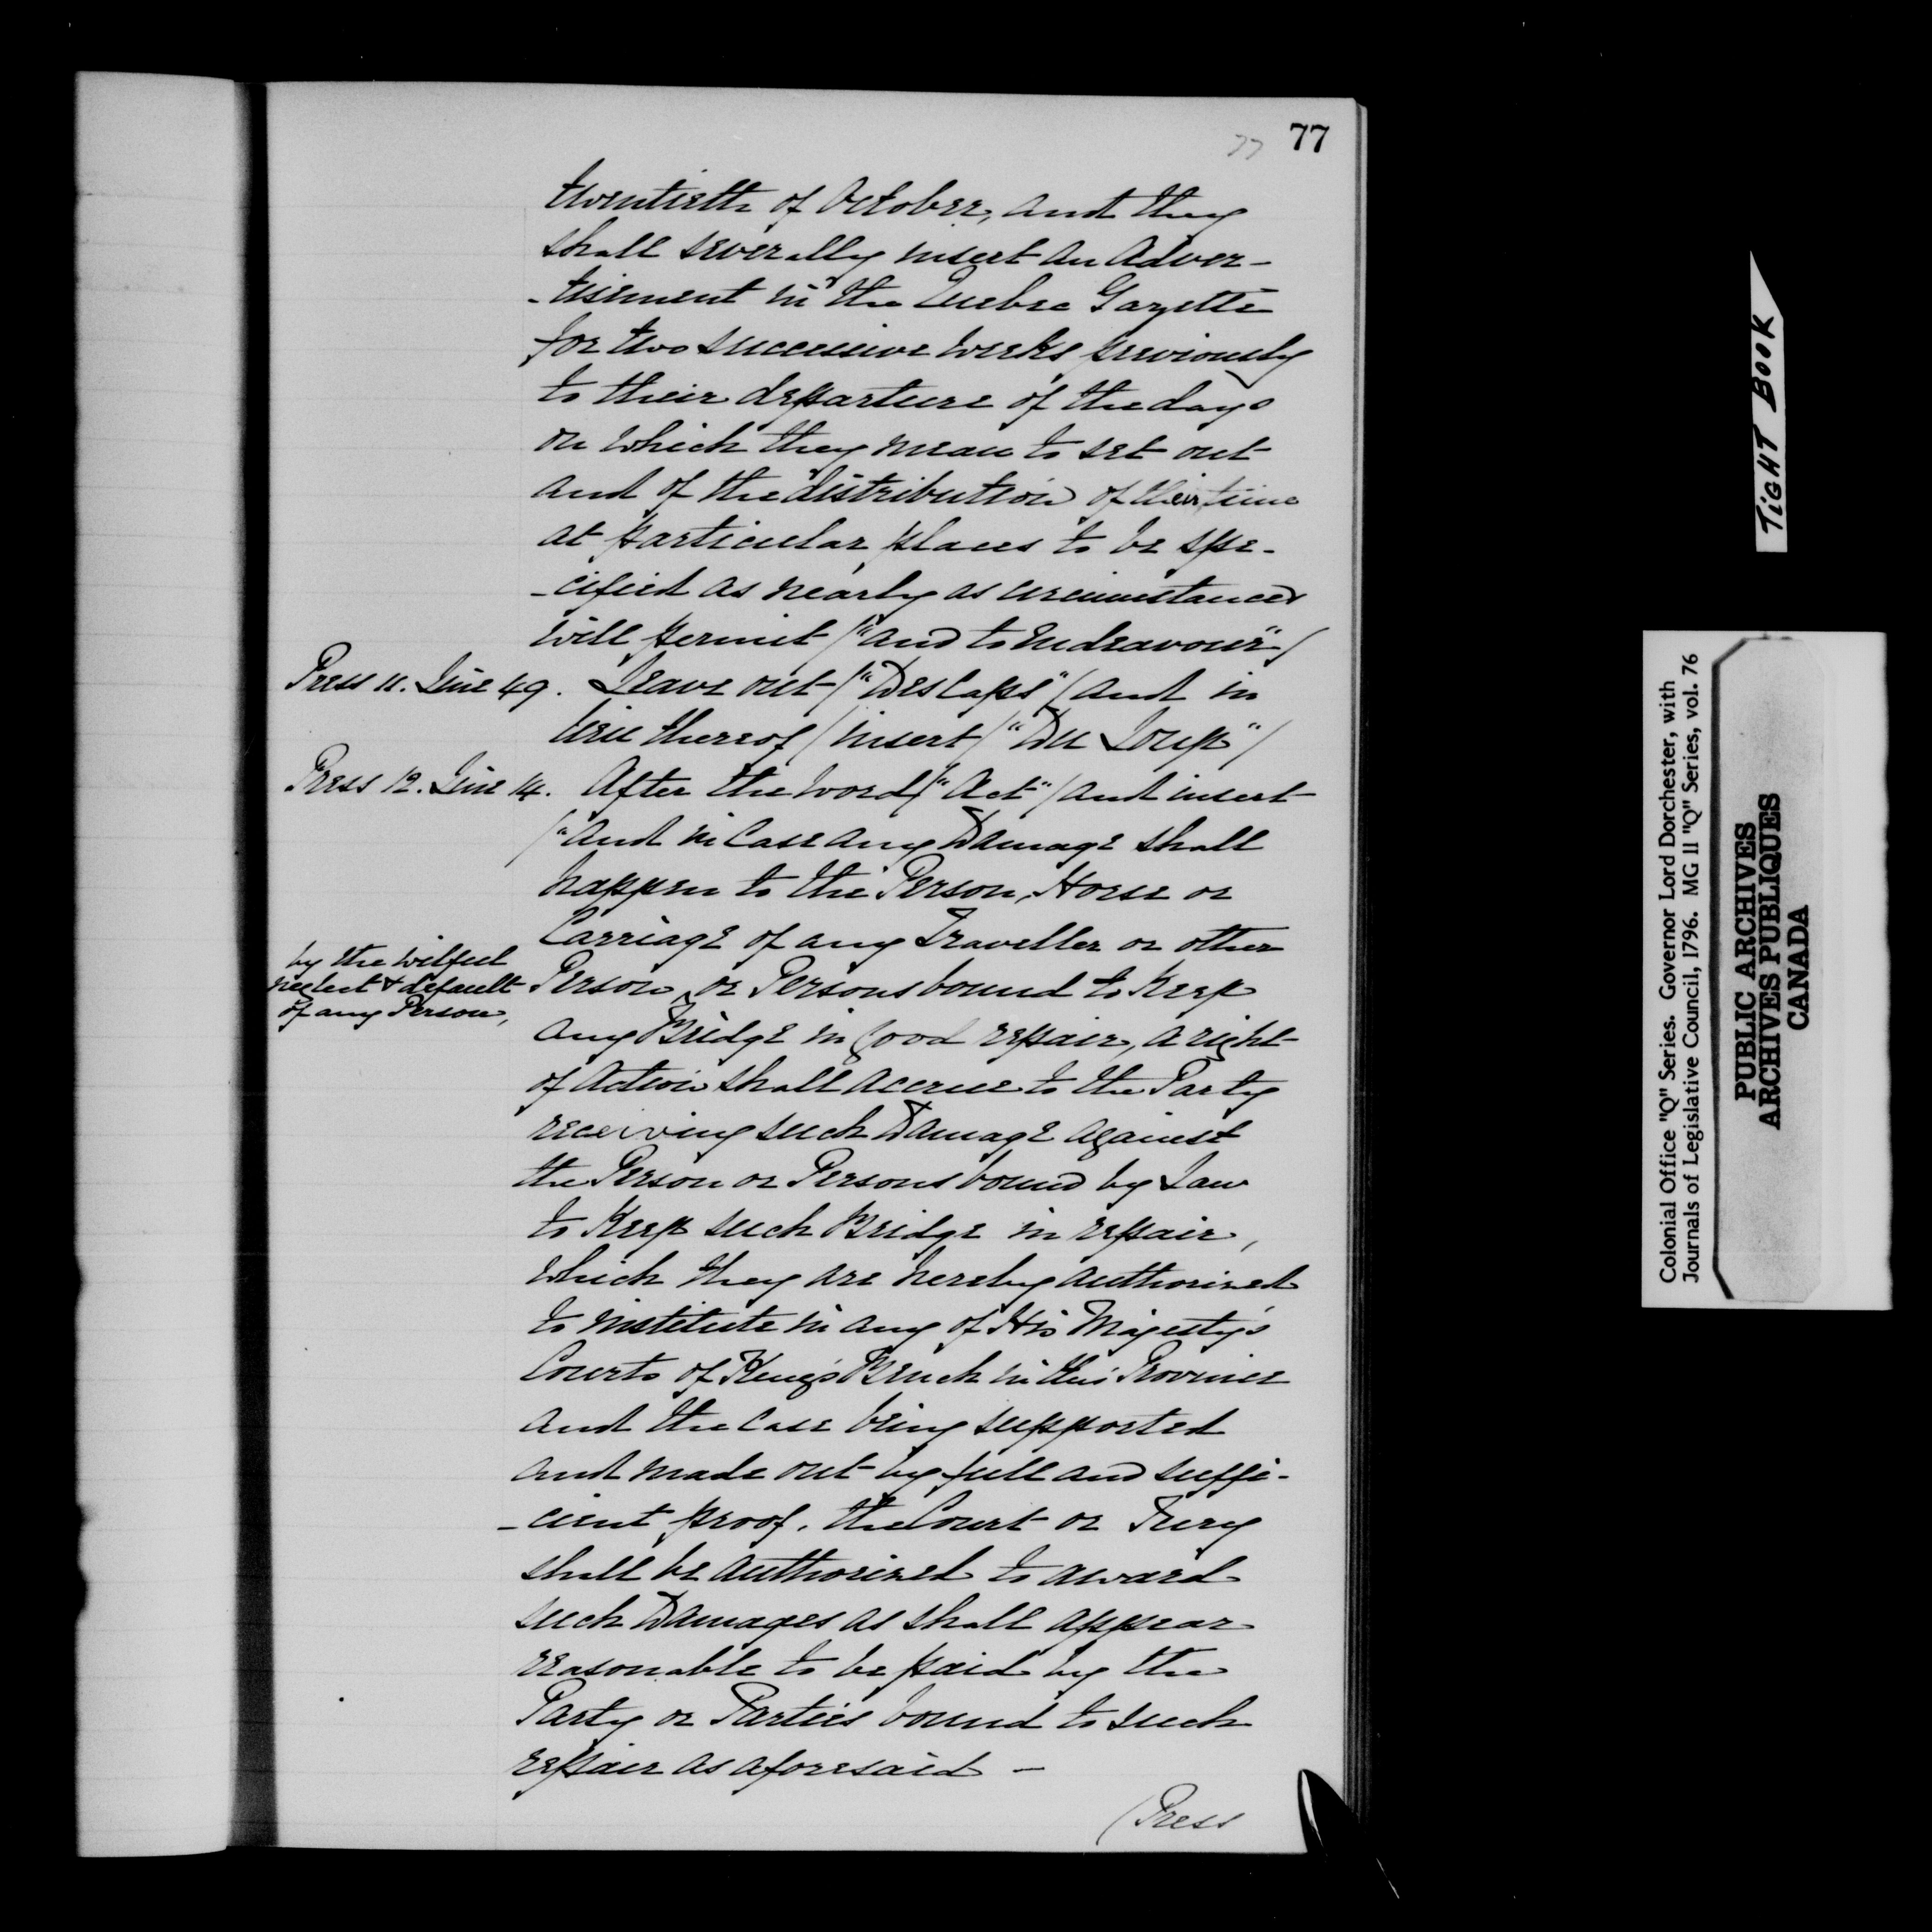 77 77
twentieth of October, and they
shall severally insert an Adver-
-tisement in the Quebec Gazette
for two successive weeks previously
to their departure of the days
on which they mean to set out
and of the distribution of their time
at particular places to be spe-
-cified as nearly as circumstances
will permit /"and to endeavour"/
Press 11. Line 49. Leave out /"Des Caps"/ and in
lieu thereof / insert / "Du Loup" /
Press 12. Line 14. After the word /"Act"/ and insert
/"and in Case any Damage shall
happen to the Person, Horse or
Carriage of any Traveller or other
by the wilful
neglect & default
of any Person,
Person ^ or Persons bound to Keep
any Bridge in good repair, a right
of Action shall accrue to the Party
receiving such Damage against
the Person or Persons bound by Law
to Keep such Bridge in repair,
which they are hereby authorized
to institute in any of His Majesty's
Courts of King's Bench in this Province
and the Case being supported
and made out by full and suffi-
-cient proof, the Court or Jury
shall be authorized to award
such Damages as shall appear
reasonable to be paid by the
Party or Parties bound to such
repair as aforesaid -
(Press
TiGHT BOOK
Colonial Office "Q" Series. Governor Lord Dorchester, with
Journals of Legislative Council, 1796. MG 11 "Q" Series, vol. 76
PUBLIC ARCHIVES
ARCHIVES PUBLIQUES
CANADA